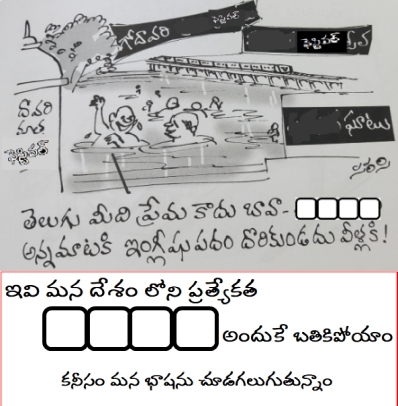 గోదావరి
ఫెస్టివల్
ఫెస్టివల్
దావరి
మాత
ఫెస్టివల్
ఘాటు
తెలుగు మీది ప్రేమ కాదు బావా-
అన్నమాటకి ఇంగ్లీషుపదం దొరికుండదు వీళ్లకి!
ఇవి మన దేశం లోని ప్రత్యేకత
అందుకే బతికిపోయాం
కనీసం మన భాషను చూడగలుగుతున్నాం